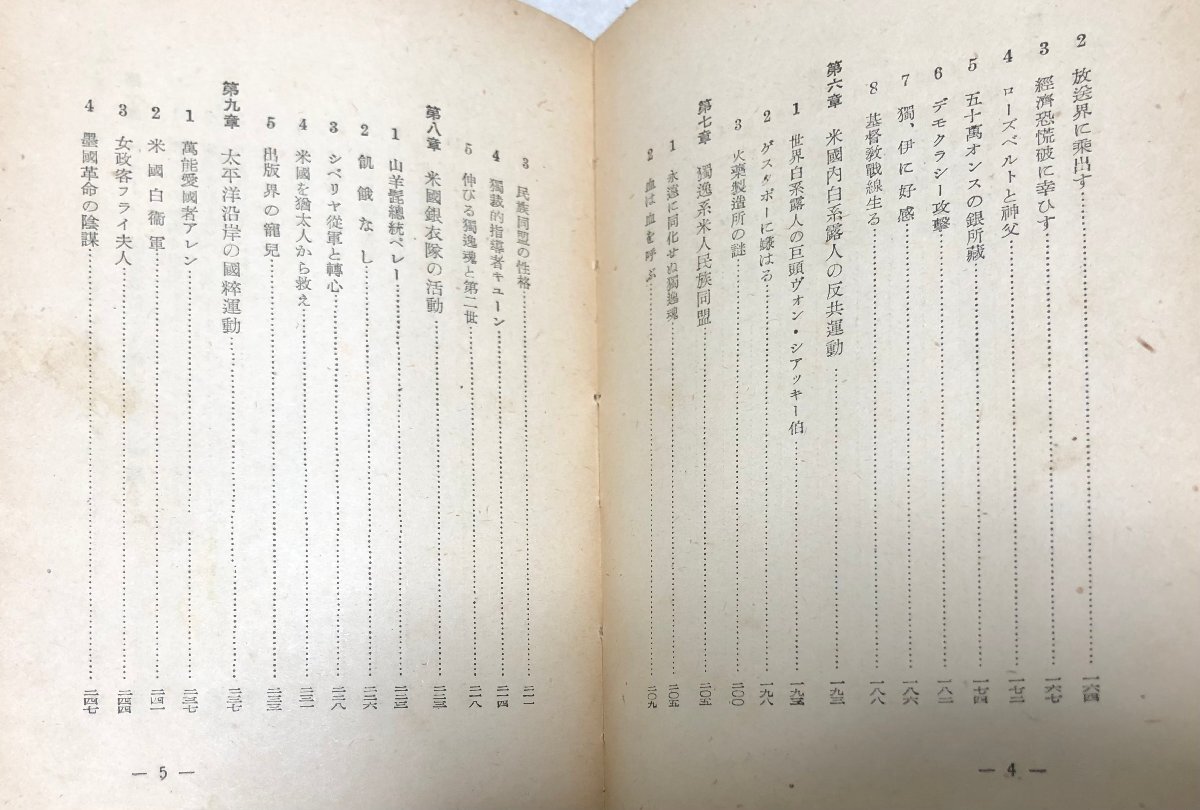 2 放送界に乘出す……一六四
3 經濟恐慌破に幸ひす……一六七
4 ローズベルトと神父……一七二
5 五十萬オンスの銀所藏……一七四
6 デモクラシー攻擊……一八二
7 獨、伊に好感……一八六
8 基督敎戰線生る……一八八
第六章 米國內白系露人の反共運動……一九三
1 世界白系露人の巨頭ヴォン・シアッキー伯……一九三
2 ゲスタポーに嫌はる……一九八
3 火藥製造所の謎……二〇〇
第七章 獨逸系米人民族同盟……二〇五
1 永遠に同化せぬ獨逸魂……二〇五
2 血は血を呼ぶ……二〇九
— 4 —
3 民族同盟の性格……二一一
4 獨裁的指導者キューン……二一四
5 伸びる獨逸魂と第二世……二一八
第八章 米國銀衣隊の活動……二二三
1 山羊髭總統ペレー……二二三
2 飢餓なし……二二六
3 シベリヤ從軍と轉心……二二八
4 米國を猶太人から救え……二三一
5 出版界の寵兒……二三三
第九章 太平洋沿岸の國粹運動……二三七
1 萬能愛國者アレン……二三七
2 米國白衞軍……二四一
3 女政客フライ夫人……二四四
4 墨國革命の陰謀……二四七
— 5 —